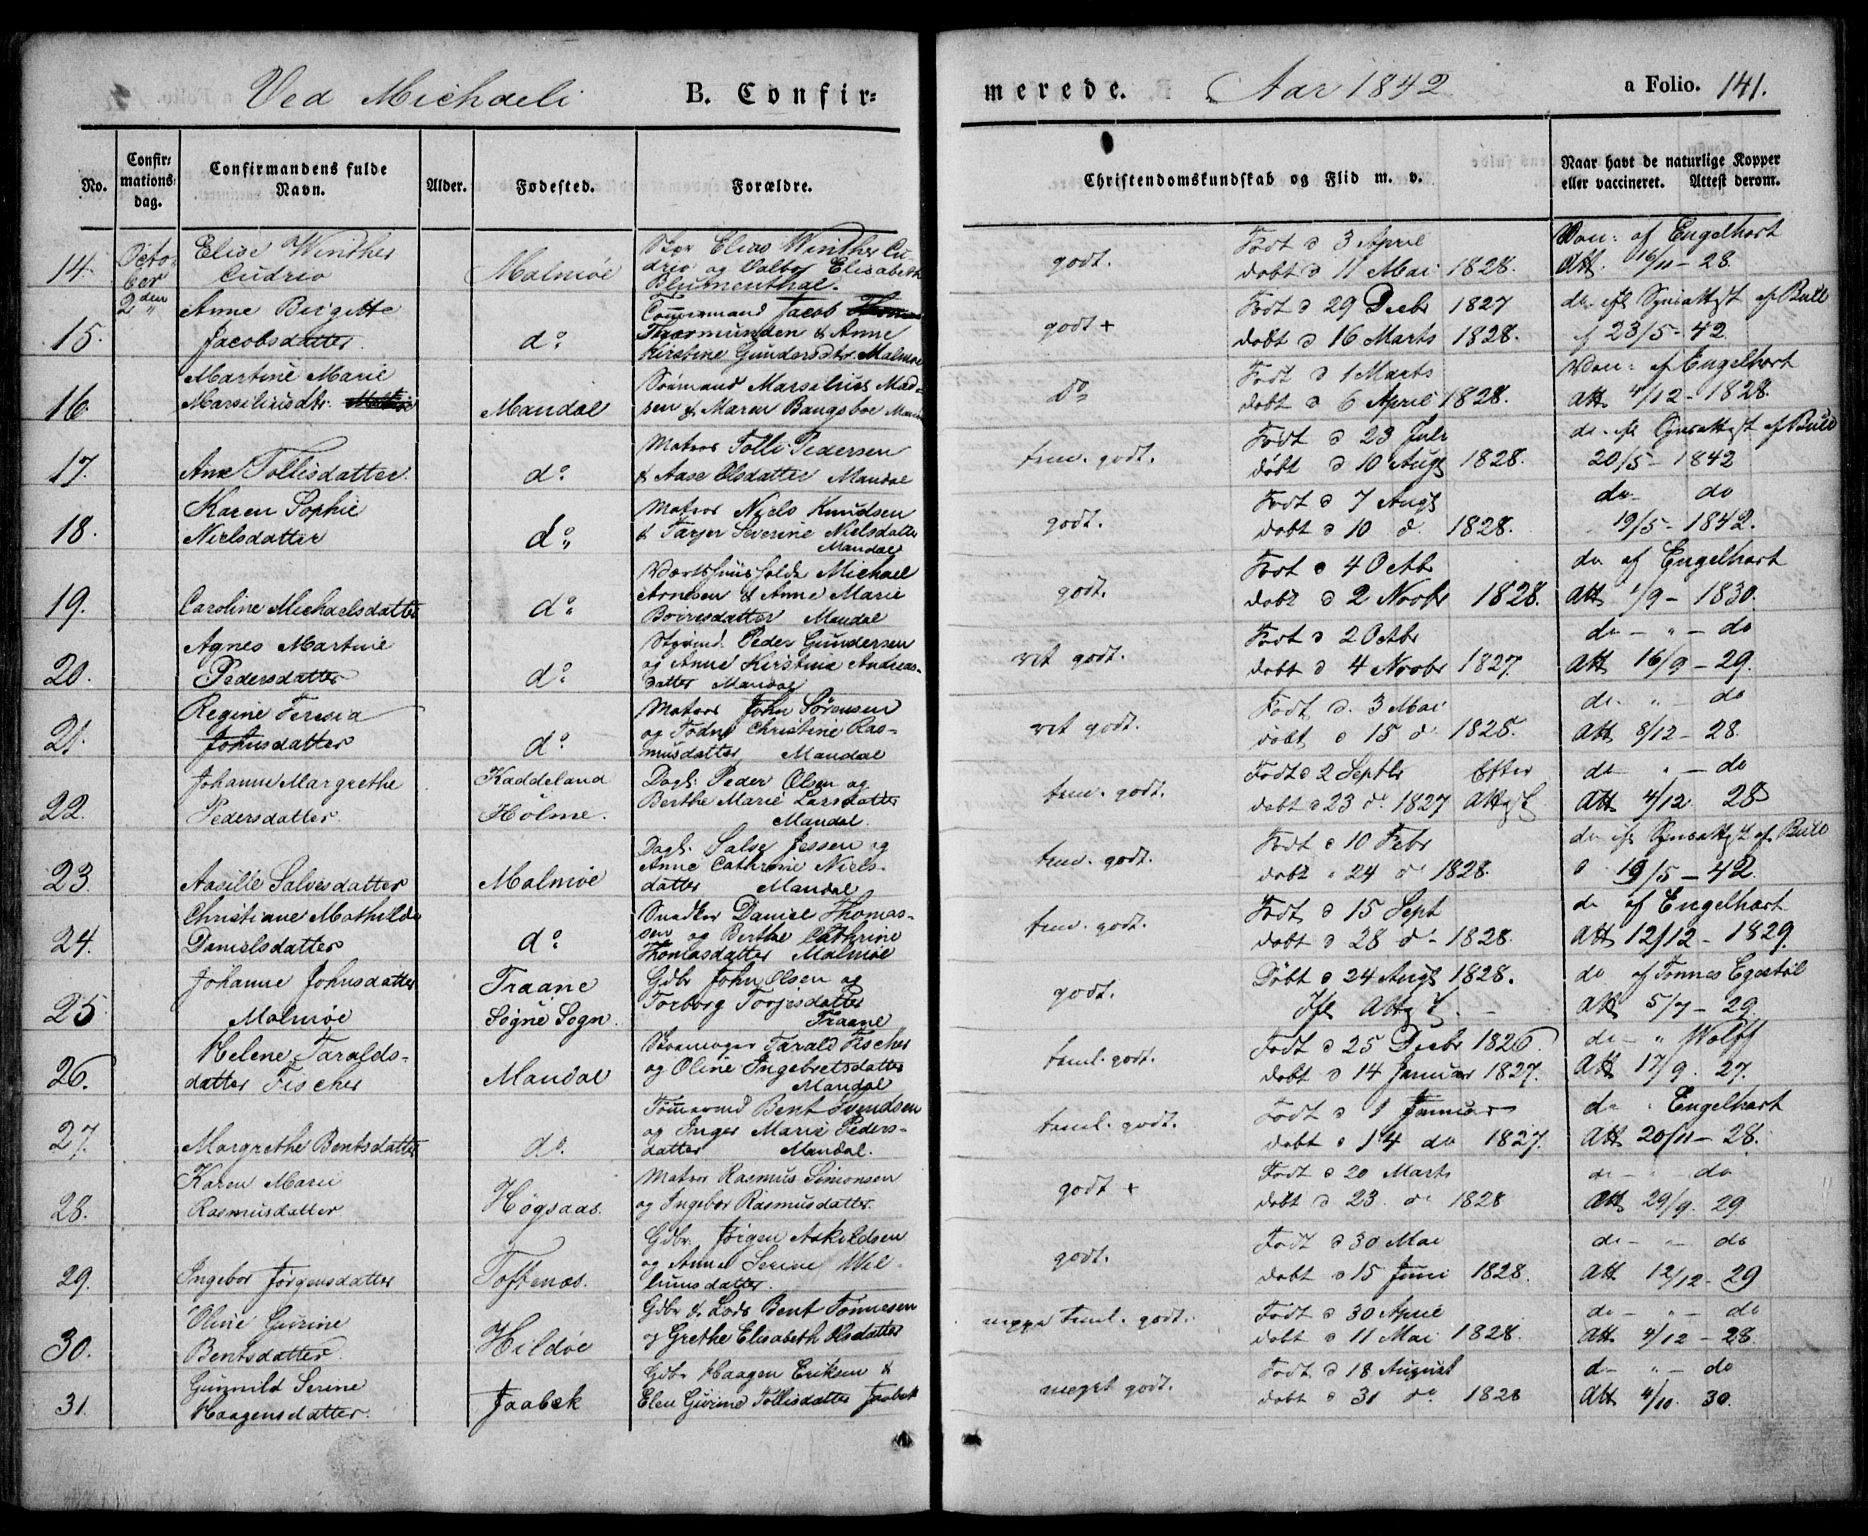 Ved Michaeli B. Confirmerede. Aar 1842 a Folio. 141.
No. Confirmationsdag. Confirmandens fulde Navn. Alder. Fødested. Forældre. Christendomskundskab og Flid m. v. Naar havt de naturlige Kopper eller vaccineret. Attest derom.
14. October 2den Elise Winther Cudrio Malmøe Elias Winther Cudrio og Valbor Elisabeth Blumenthal. godt. Født d 3 April døbt d 11 Mai 1828. Vac: af Engelhart Att. 16/11 - 28.
15. Anne Birgitte Jacobsdatter do Tømmermand Jacob Thormunden & Anne Kirstine Gundersdtr. Malmøe godt + Født d 29 Decbr 1827 døbt d 16 Marts 1828. do efl Synsattest af Bull d 23/5 - 42.
16. Martine Marie Marsiliusdtr. Mandal Sømand Marsilius Madsen & Maren Bangsboe do Født d 1 Marts døbt d 6 April 1828. Vac: af Engelhart Att 4/12 - 1828.
17. Ane Tollisdatter do Matros Tolli Pedersen & Aase Olsdatter Mandal teml. godt. Født d 23 Juli døbt d 10 Augs 1828. do efl Synsattest af Bull 20/5 - 1842
18. Karen Sophie Nielsdatter do Matros Niels Knudsen & Tarjer Severine Nielsdatter Mandal godt. Født d 7 Augs døbt d 10 d. 1828. do do 19/5 - 1842.
19. Caroline Michaelsdatter do Værtshuusholder Michael Arnesen & Anne Marie Boiresdatter Mandal godt. Født d 4 Octbr døbt d 2 Novbr 1828. do af Engelhart Att 1/9 - 1830.
20. Agnes Martine Pedersdatter do Styrmd. Peder Gundersen og Anne Kirstina Andreasdatter Mandal ret godt. Født d 2 Octbr døbt d 4 Novbr 1827. do - " - do Att 16/9 - 29.
21. Regine Teresia Johnsdatter do Matros John Sørensen og Todne Christine Rasmusdatter Mandal ret godt. Født d. 3 Mai døbt d 15 d. 1828. do " - do Att 8/12 - 28.
22. Johanne Margrethe Pedersdatter Kaddeland Holme. Dagl. Peder Olsen og Berthe Marie Larsdatter Mandal. teml. godt. Født d 2 Septbr Efter døbt d 23 do 1827 Attest do " - do Att 4/12 28
23. Aasille Salvesdatter Malmøe Dagl. Salve Jessen og Anne Cathrine Nielsdatter Mandal teml. godt. Født d 10 Febr døbt d 24 d 1828. do efl Synsattest af Bull d 19/5 - 42.
24. Christiane Mathilde Danielsdatter do Snedker Daniel Thomassen og Berthe Cathrine Thomasdatter Malmøe teml. godt. Født d 15 Sept døbt d 28 d - 1828. do af Engelhart Att 12/12 - 1829.
25 Johanne Johnsdatter Malmøe Traane Søgne Sogn. Gdbr John Olsen og Torborg Torjesdatter Traane godt. Døbt d 24 Augs 1828. Ifl Attest. do af Tønnes Egestøl Att 5/7 - 29.
26. Helene Taraldsdatter Fischer Mandal Skomager Tarald Fischer og Oline Ingebretsdatter Mandal teml. godt. Født d 25 Decbr 1826 døbt d 14 Januar 1827. do - " Wolff Att 17/9. 27.
27. Margrethe Bentsdatter do. Tømmermd Bent Svendsen og Inger Marie Pedersdatter Mandal. teml. godt. Født d 1 Januar døbt d 14 do 1827. do " Engelhart Att 20/11 - 28.
28. Karen Marie Rasmusdatter Høgsaas. Matros Rasmus Simonsen og Ingebor Rasmusdatter. godt + Født d 20 Marts døbt d 23 do 1828 do - " do Att 29/9. 29
29. Ingebor Jørgensdatter Toftenæs. Gdbr. Jørgen Askildsen og Anne Serine Willumsdatter. godt. Født d 30 Mai døbt d 15 Juni 1828. do - " do Att 12/12 - 29
30. Oline Gurine Bentsdatter Hildøe Gdbr & Lods Bent Tønnesen og Grethe Elisabeth Olsdatter neppe teml. godt. Født d 30 April døbt d 11 Mai 1828. do - " - do Att 4/12 - 28.
31. Gunnild Serine Haagensdatter. Jaabæk Gdbr Haagen Eriksen & Elen Gurine Tollisdatter Jaabek meget godt. Født d 18 August døbt d 31 do 1828 do - " - do Att 4/10. 30.